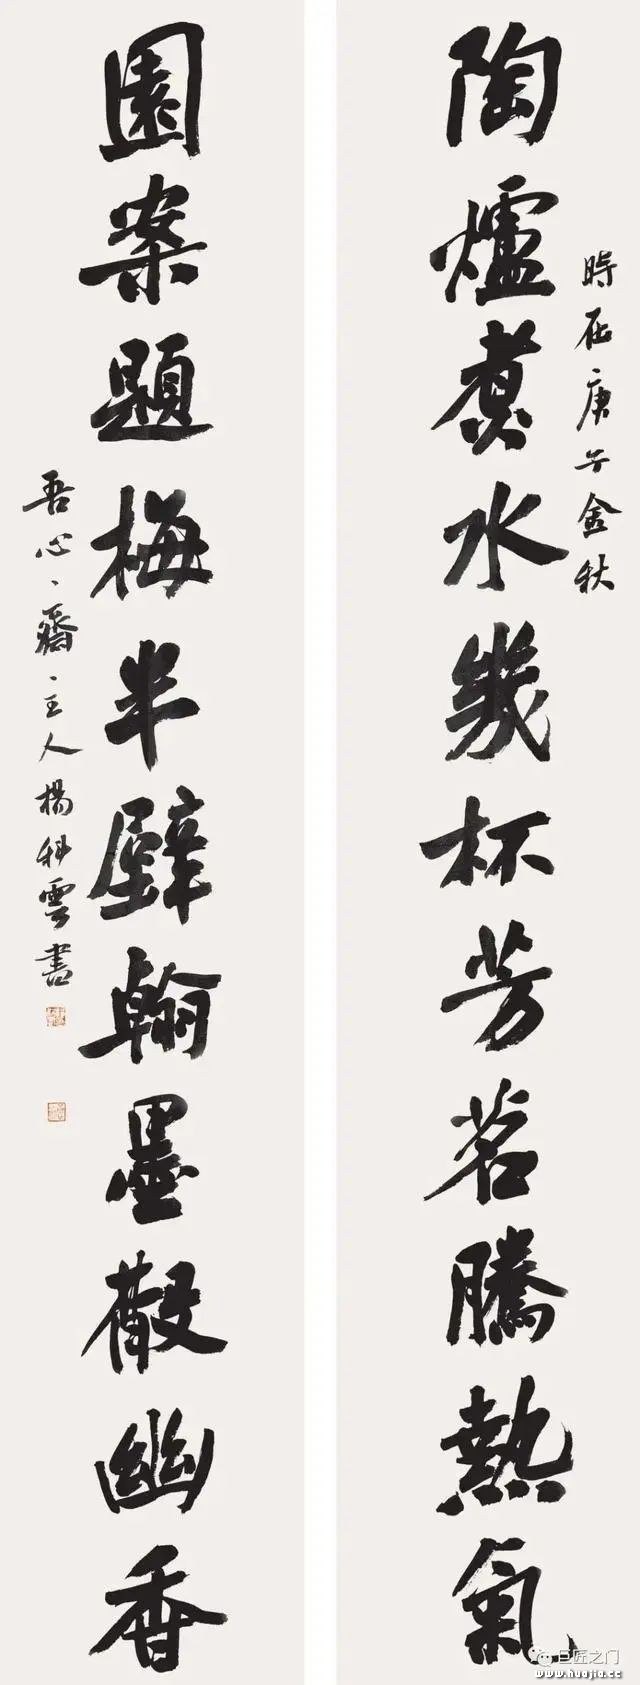 陶爐煑水幾杯芳茗騰熱氣
時在庚子金秋
園案題梅半壁翰墨散幽香
吾心齋主人楊科雲書
巨匠之门
www.huajia.cc